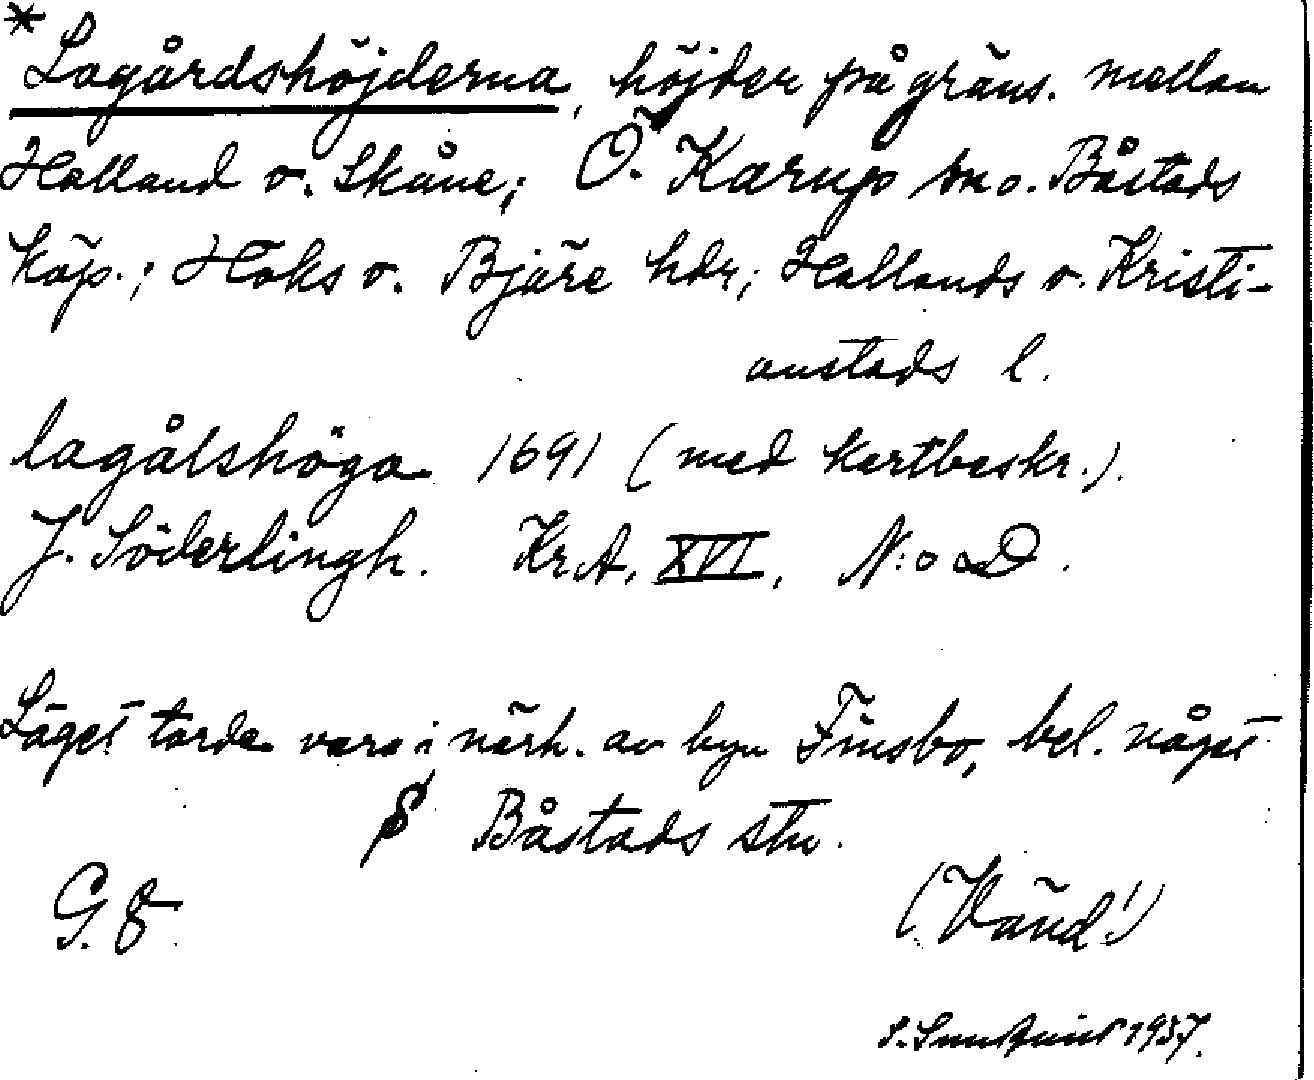 * Lagårdshöjderna, höjder på gräns. mellan
Halland o. Skåne; Ö. Karup sn o. Båstads
köp.; Höks o. Bjäre hdr; Hallands o. Kristi-
anstads l.
lagålshöga 1691 (med kartbeskr.).
J. Söderlingh. Kr.A. XVI, N:o D.
Läget torde vara i närh. av byn Finsbo, bel. något
S Båstads stn.
G. 8
(Vänd!)
1937.